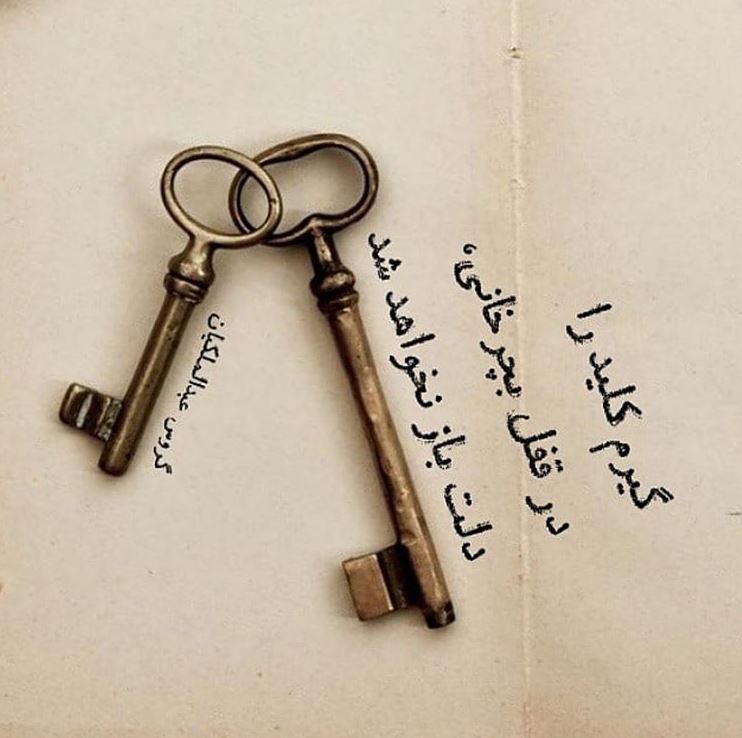 گیرم کلید را
در قفل بچرخانی،
دلت باز نخواهد شد
گروس عبدالملکیان